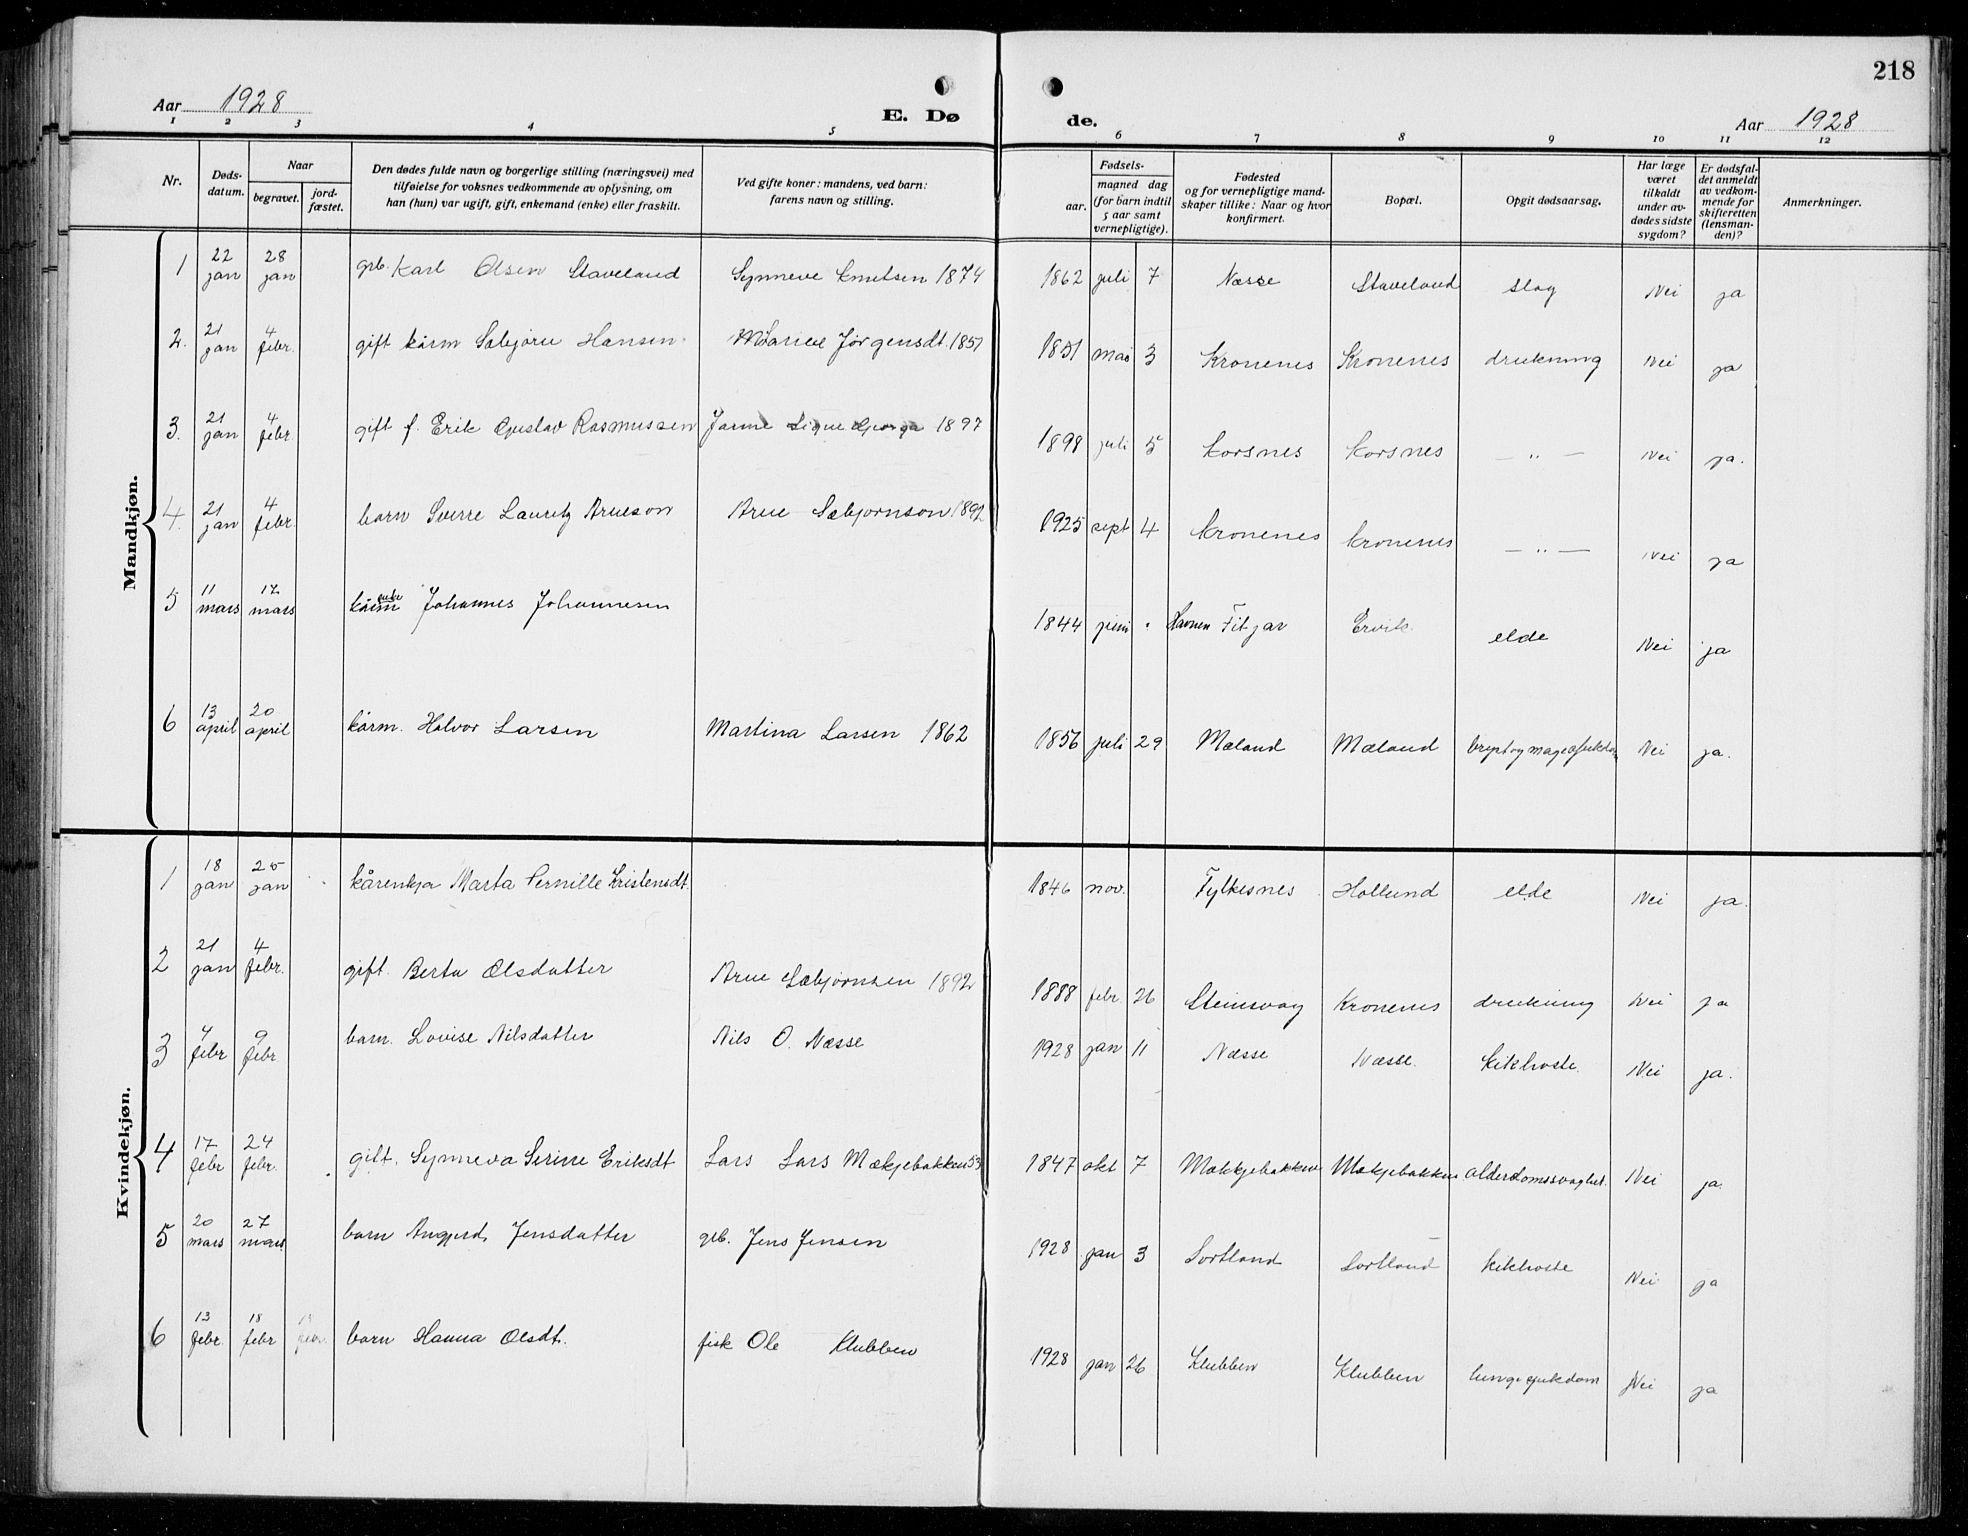 218
Aar 1928
E. Døde.
Aar 1928
1 2 3 4 5 6 7 8 9 10 11 12
Nr.
Døds-datum.
Naar
begravet.
jord-fæstet.
Den dødes fulde navn og borgerlige stilling (næringsvei) med
tilføielse for voksnes vedkommende av oplysning, om
han (hun) var ugift, gift, enkemand (enke) eller fraskilt.
Ved gifte koner: mandens, ved barn:
farens navn og stilling.
Fødsels-
aar.
maaned dag
(for barn indtil
5 aar samt
vernepligtige).
Fødested
og for vernepligtige mand-
skaper tillike: Naar og hvor
konfirmert.
Bopæl.
Opgit dødsaarsag.
Har læge
været
tilkaldt
under av-
dødes sidste
sygdom?
Er dødsfal-
det anmeldt
av vedkom-
mende for
skifteretten
(lensman-
den)?
Anmerkninger.
Mandkjøn.
1 22 jan 28 jan grb. Karl Olsen Staveland Synneve Knutsen 1874 1862 juli 7 Næsse Staveland slag Nei ja
2. 21 jan 4 febr. gift kårm Sæbjørn Hansen Jørgensdt. 1851 1851 mai 3 Kronenes Kronenes drukning Nei ja
3. 21 jan 4 febr. gift f. Erik Gustav Rasmussen 1897 1898 juli 5 Korsnes Korsnes — " — Nei ja.
4. 21 jan 4 febr. barn Sverre Lauritz Arneson Arne Sæbjørnson 1892 1925 sept 4 Kronenes Kronenes — " — Nei ja
5 11 mars 17 mars kårm enke Johannes Johannesen 1844 juni " Havnen Fitjar Ervik elde Nei ja
6 13 april 20 april kårm. Halvor Larsen Martina Larsen 1862 1856 juli 29 Mæland Mæland Nei ja.
Kvindekjøn.
1 18 jan 25 jan kårenkja Marta Pernille Kristensdt. 1846 nov. Fylkesnes Hollund elde Nei ja.
2 21 jan 4 febr. gift. Berta Olsdatter Arne Sæbjørnsen 1892 1888 febr. 26 Steinsvag Kronenes drukning Nei ja
3 4 febr 9 febr barn. Lovise Nilsdatter Nils O. Næsse 1928 jan 11 Næsse Næsse. Kikhoste. Nei ja.
4 17 febr 24 febr. gift. Synneva Serine Eriksdt Lars Lars Mækjebakken 53 1847 okt 7 Mækkjebakken Mækjebakken alderdomssvaghet. Nei ja.
5 20 mars 27 mars. barn Angjerd Jensdatter grb. Jens Jensen 1928 jan 3 Sortland Sortland kikhoste Nei ja
6 13 febr. 18 febr barn Hanna Olsdt. fisk Ole Klubben 1928 jan 26 Klubben Klubben lungesjukdom Nei ja